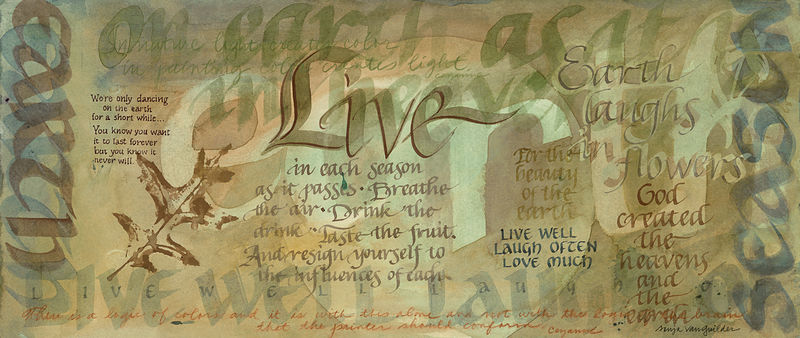 on earth as it
in heaven
Earth
season
In nature, light creates color
in painting color creates light.
We're only dancing
on the earth
for a short while...
You know you want
it to last forever
but you know it
never will.
Live
in each season
as it passes · Breathe
the air · Drink the
drink · Taste the fruit.
And resign yourself to
the influences of each
Earth
laughs
in
flowers
For the
beauty
of the
earth
LIVE WELL
LAUGH OFTEN
LOVE MUCH
God
created
the
heavens
and
the
earth
LIVE WELL LAUGH OF
Live well laugh of
There is a logic of colors and it is with this alone and not with the logic of the brain
that the painter should conform. Cezanne